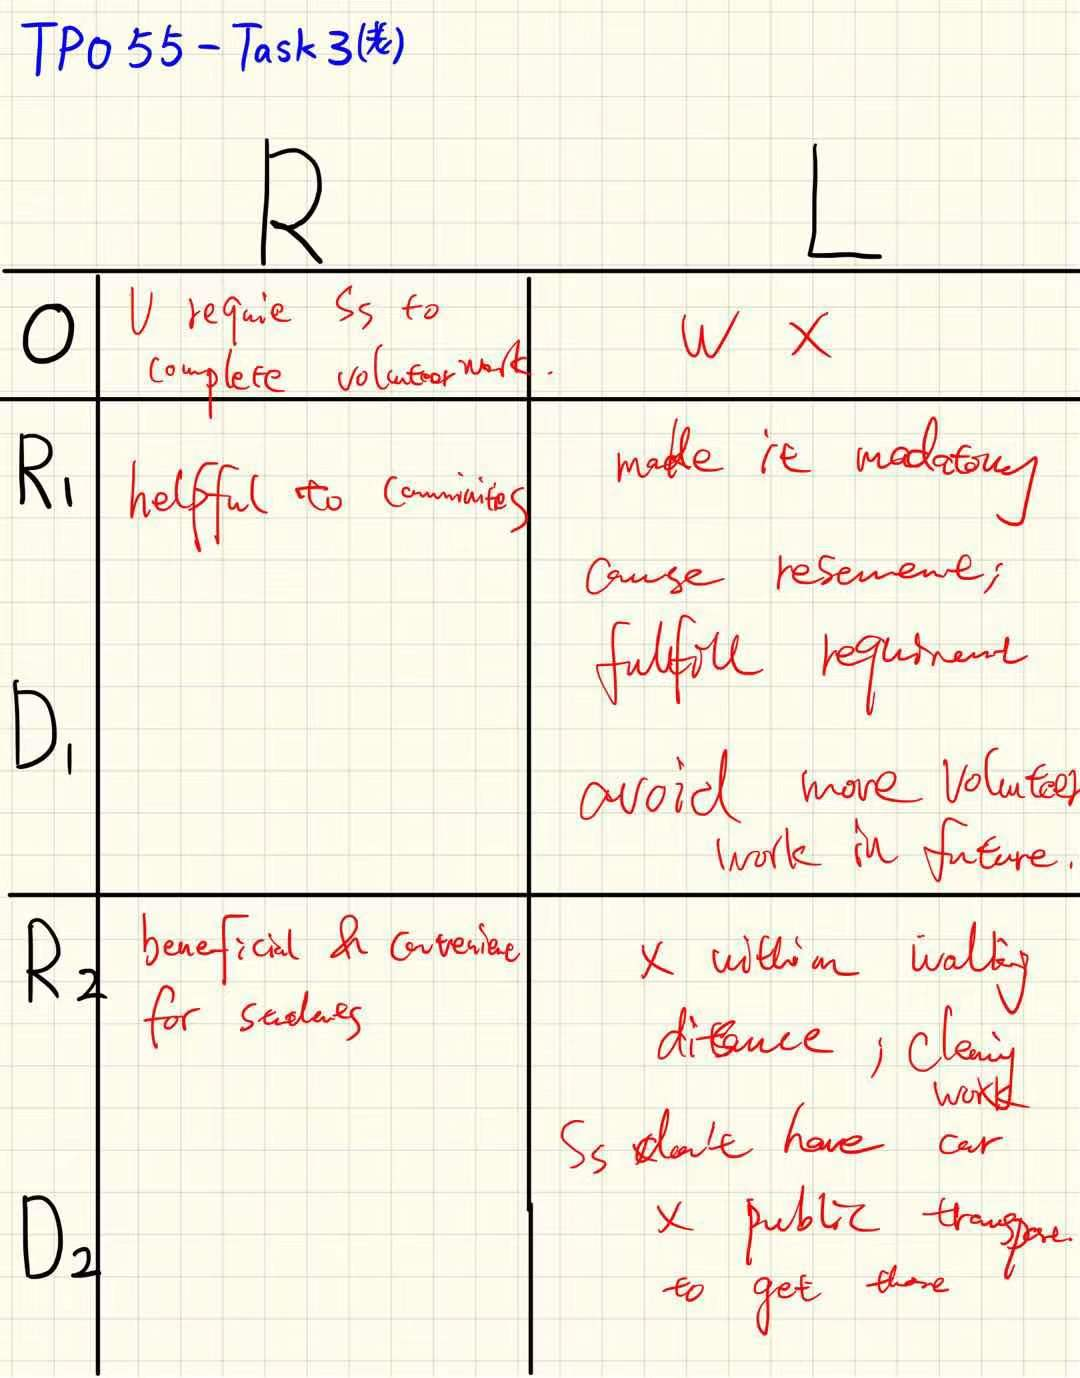 TPO 55 - Task 3(老)
R L
O
U requie Ss to
complete volunteer work.
W X
R1
helpful to
made it madatory
cause resement;
fullfill requirement
D1
avoid more volunteer
work in future.
R2
beneficial & convenient
for students
X within walking
distance ; cleaning
work
Ss don't have car
D2
X public transport.
to get there